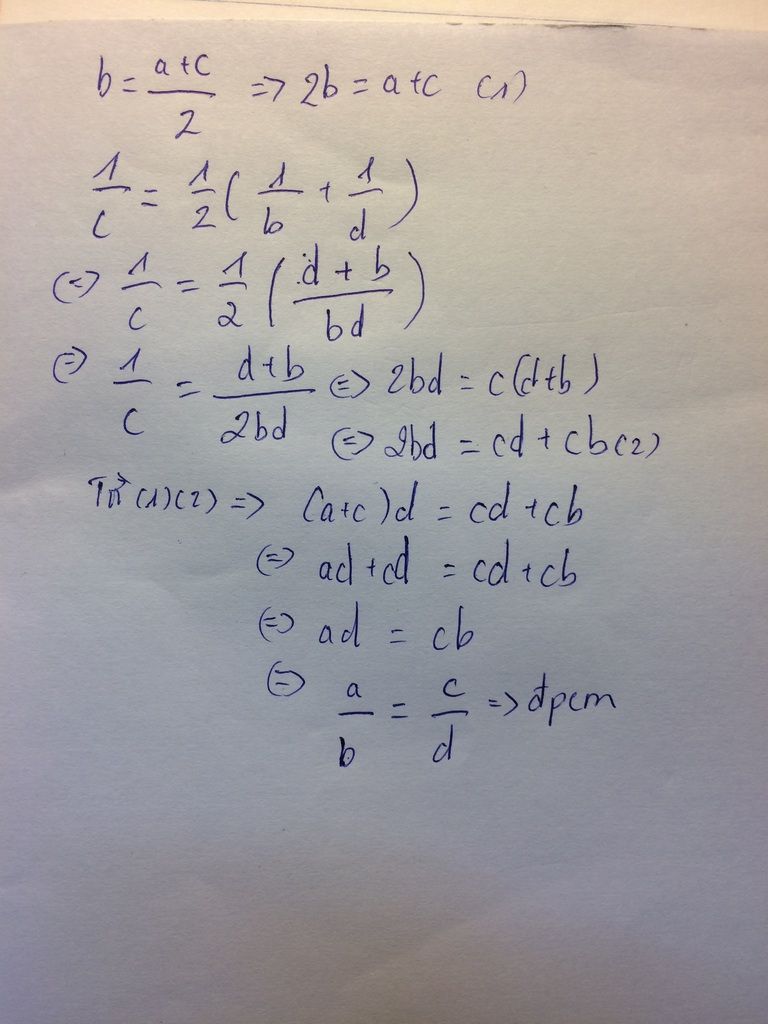 b = a+c/2 => 2b = a+c (1)
1/c = 1/2 ( 1/b + 1/d )
(=) 1/c = 1/2 ( d + b / bd )
(=) 1/c = d+b / 2bd (=) 2bd = c(d+b)
(=) 2bd = cd + cb (2)
Từ (1) (2) => (a+c)d = cd + cb
(=) ad + cd = cd + cb
(=) ad = cb
(=) a/b = c/d => đpcm